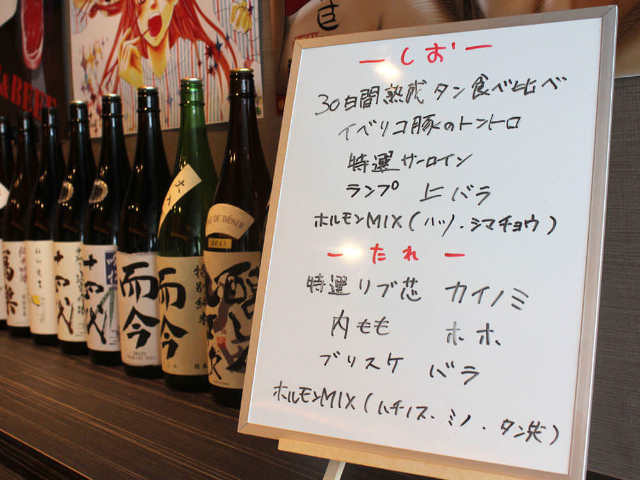 ーしおー
30日間熟成 タン食べ比べ
イベリコ豚のトントロ
特選サーロイン
ランプ 上バラ
ホルモンMIX(ハツ・シマチョウ)
ーたれー
特選リブ芯 カイノミ
内もも ホホ
ブリスケ バラ
ホルモンMIX(ハチノス・ミノ・タン先)
十四代
十四代
而今
而今
特別純米